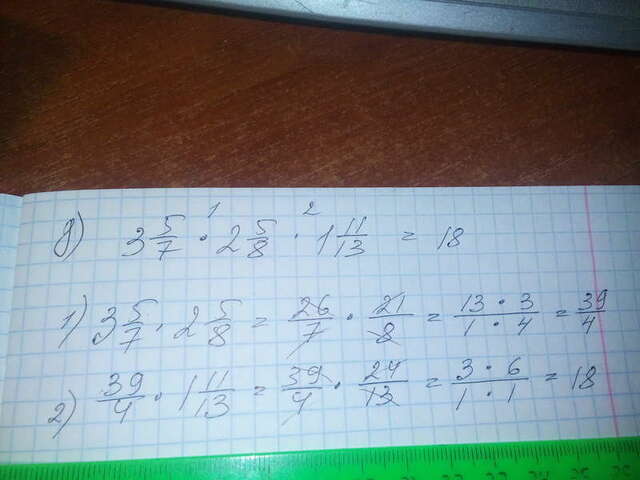 д) 3 5/7 · 2 5/8 · 1 11/13 = 18
1) 3 5/7 · 2 5/8 = 26/7 · 21/8 = 13 · 3/1 · 4 = 39/4
2) 39/4 · 1 11/13 = 39/4 · 24/13 = 3 · 6/1 · 1 = 18